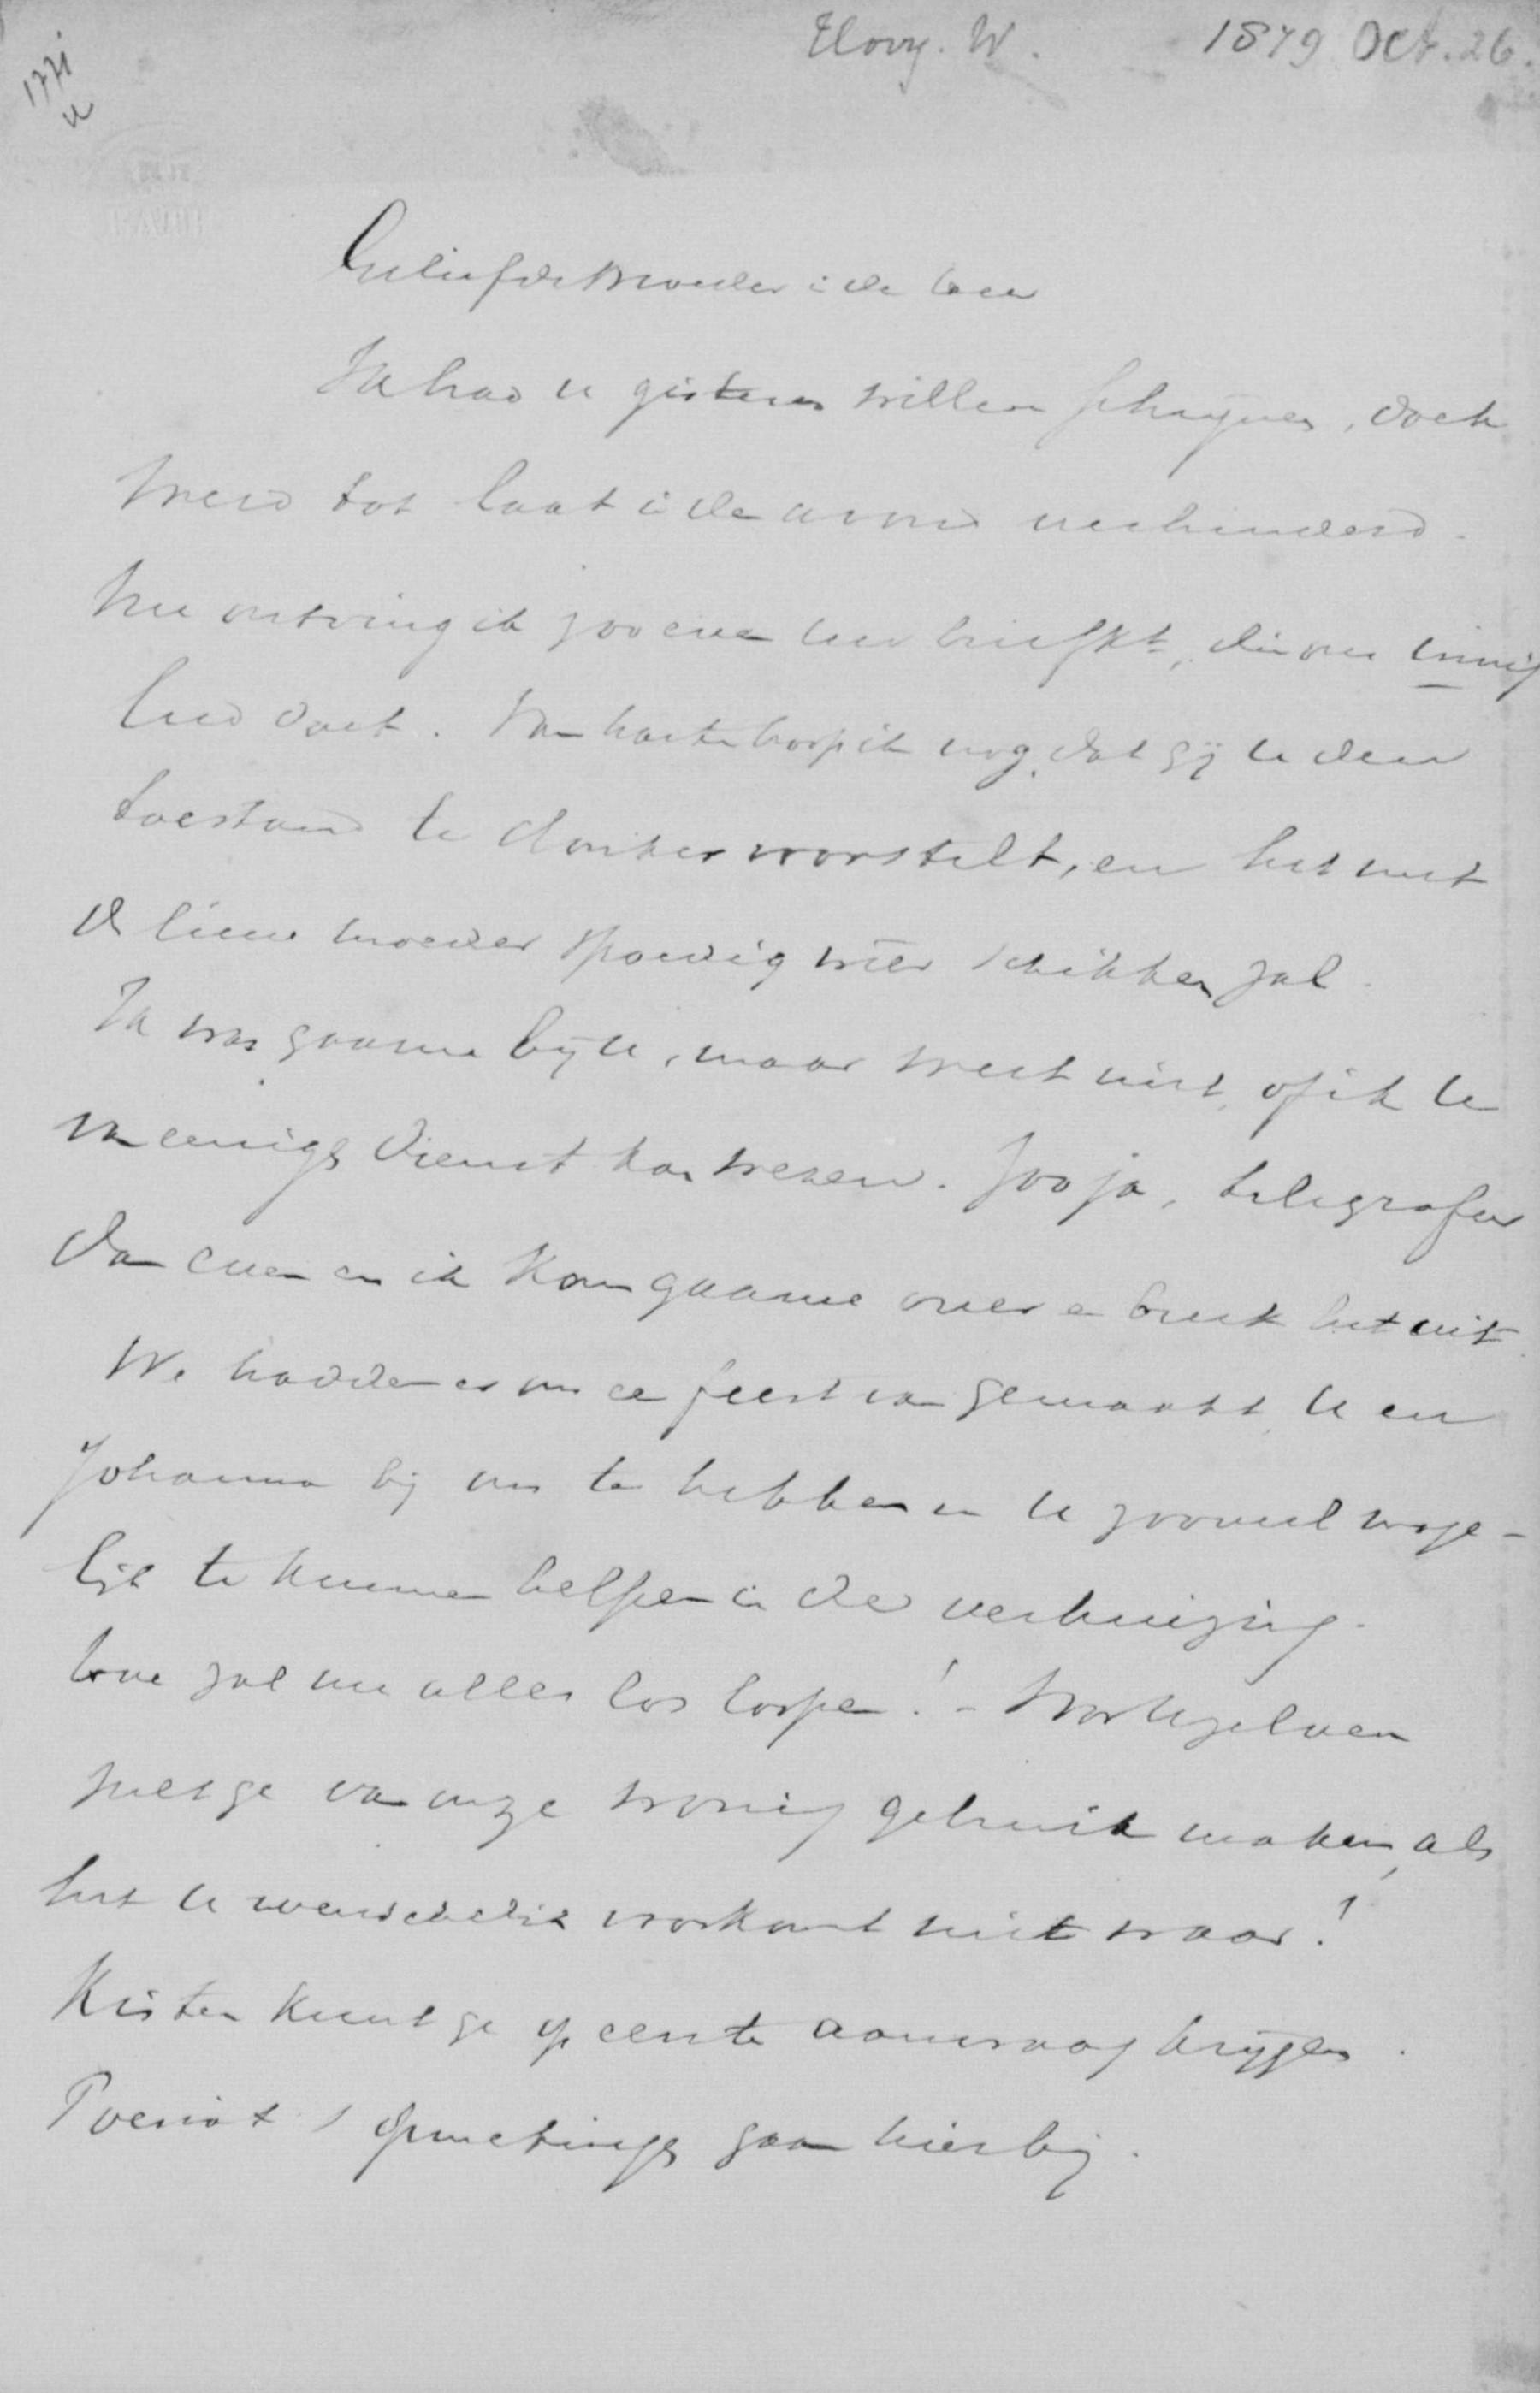 Hovy. W. 1879 Oct. 26.
1771
Geliefde Broeder i de Heer
Ik had u gisteren willen schrijven, doch
werd tot laat i de avond verhinderd.
Nu ontving ik zoo even uw briefkt, die me innig
leed doet. Van harte hoop ik nog, dat gij u den
toestand te donker voorstelt, en het met
de lieve moeder spoedig weer schikken zal.
Ik was gaarne bij u, maar weet niet, of ik u
van eenige dienst kan wezen. Zoo ja, telegrafeer
dan even en ik kom gaarne over en breek het uit
We hadden er ons een feest van gemaakt, u en
Johanna bij ons te hebben en u zooveel moge-
lijk te kunnen helpen in de verhuizing.
Hoe zal nu alles los loopen! -
zult ge van onze woning gebruik maken, als
het u wenschelijk voorkomt niet waar!
Kisten kunt ge op eerste aanvraag krijgen.
Poeriat's opmetings gaan hierbij.